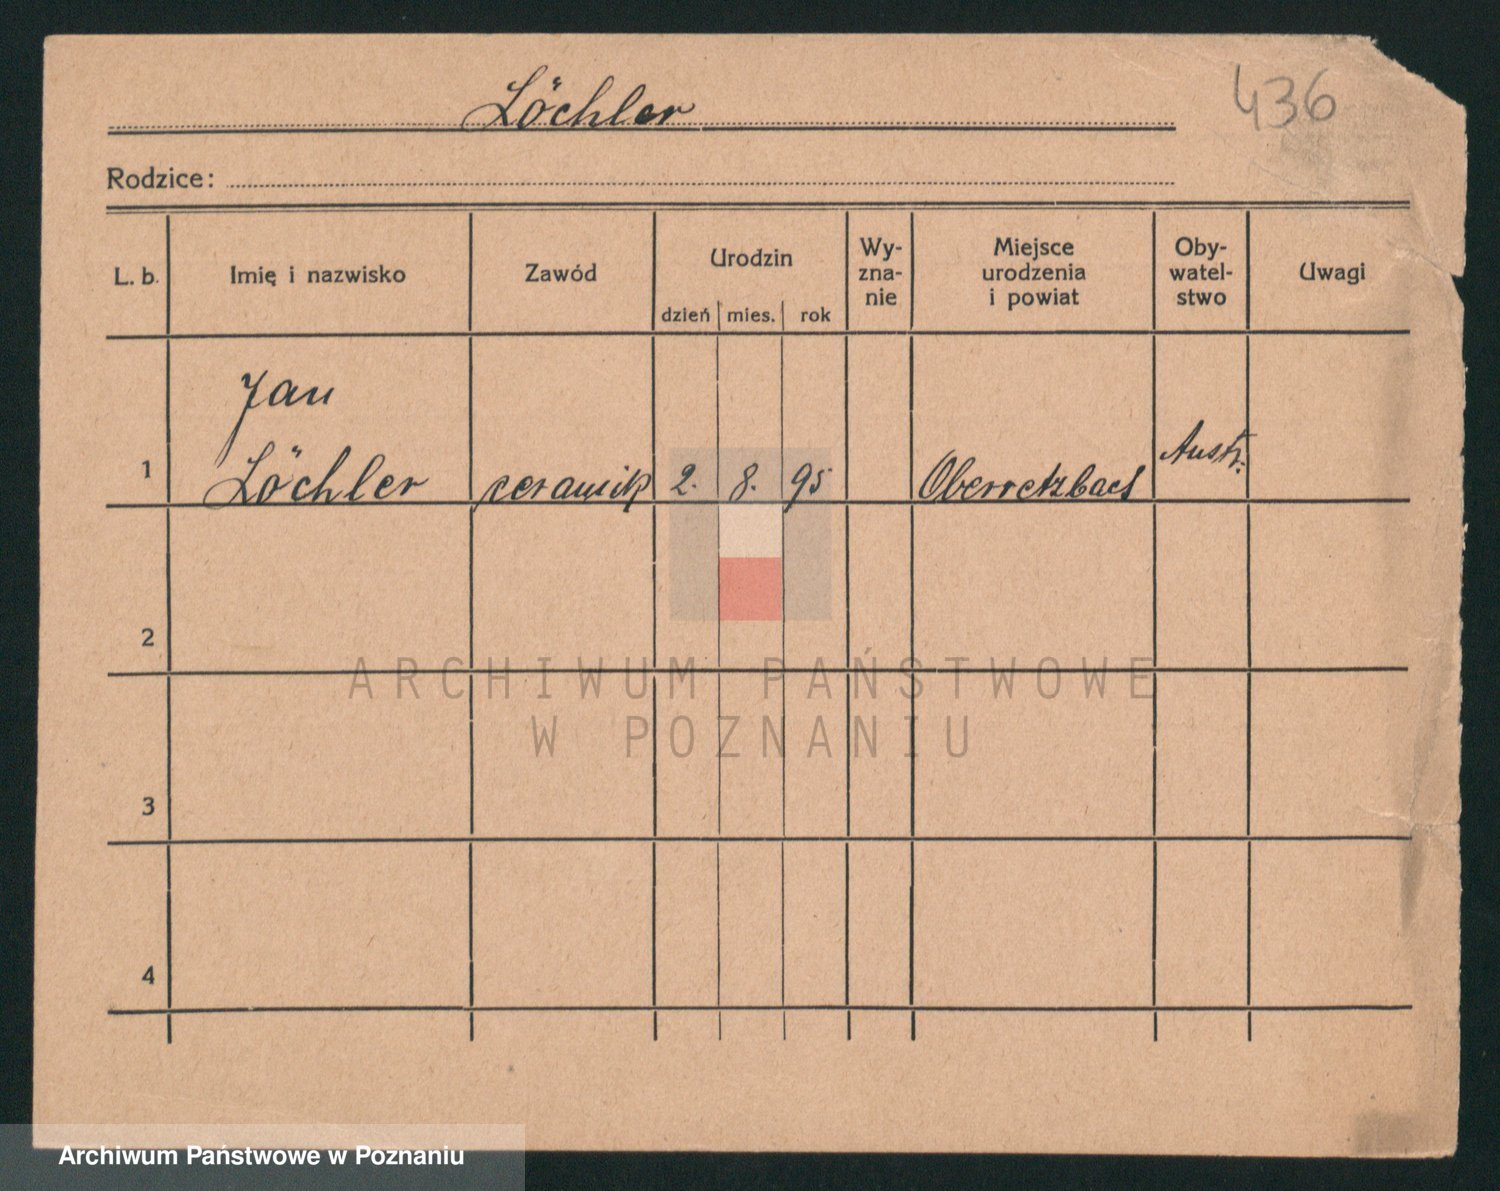 Löchler
436
Rodzice:
L. b.
Imię i nazwisko
Zawód
Urodzin
dzień mies. rok
Wy-
zna-
nie
Miejsce
urodzenia
i powiat
Oby-
watel-
stwo
Uwagi
Jan
1 Löchler ceramik 2. 8. 95 Oberretzbach Austr.
2
3
4
ARCHIWUM PAŃSTWOWE
W POZNANIU
Archiwum Państwowe w Poznaniu